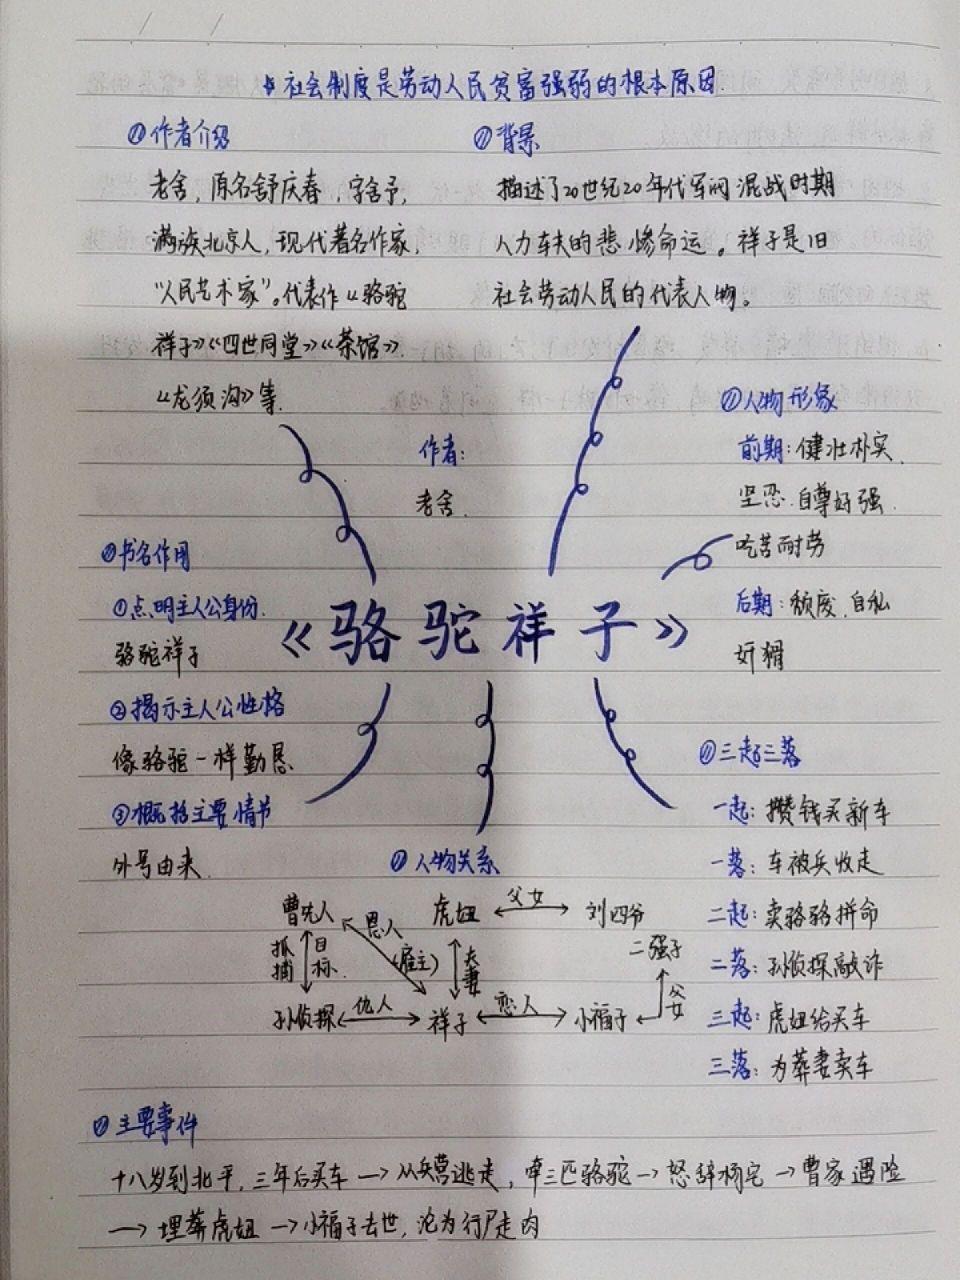 社会制度是劳动人民贫富强弱的根本原因.
作者介绍
老舍,原名舒庆春,字舍予,
满族北京人,现代著名作家,
“人民艺术家”。代表作《骆驼
祥子》《四世同堂》《茶馆》.
《龙须沟》等.
背景
描述了20世纪20年代军阀混战时期
人力车夫的悲惨命运。祥子是旧
社会劳动人民的代表人物。
作者:
老舍.
人物形象
前期:健壮朴实.
坚忍.自尊好强.
吃苦而耐劳
后期:颓废.自私
奸猾
书名作用
①点明主人公身份.
骆驼祥子
②揭示主人公性格
像骆驼一样勤恳.
③概括主要情节
外号由来.
《骆驼祥子》
三起三落
一起:攒钱买新车
一落:车被兵收走
二起:卖骆驼拼命
二落:孙侦探敲诈
三起:虎妞给买车
三落:为葬妻卖车
人物关系
曹先人
恩人
(雇主)
虎妞
父女
刘四爷
抓捕
目标.
夫妻
二强子
父女
孙侦探
仇人
祥子
恋人
小福子
主要事件
十八岁到北平,三年后买车→从兵营逃走,牵三匹骆驼→怒辞杨宅→曹家遇险
→埋葬虎妞→小福子去世,沦为行尸走肉